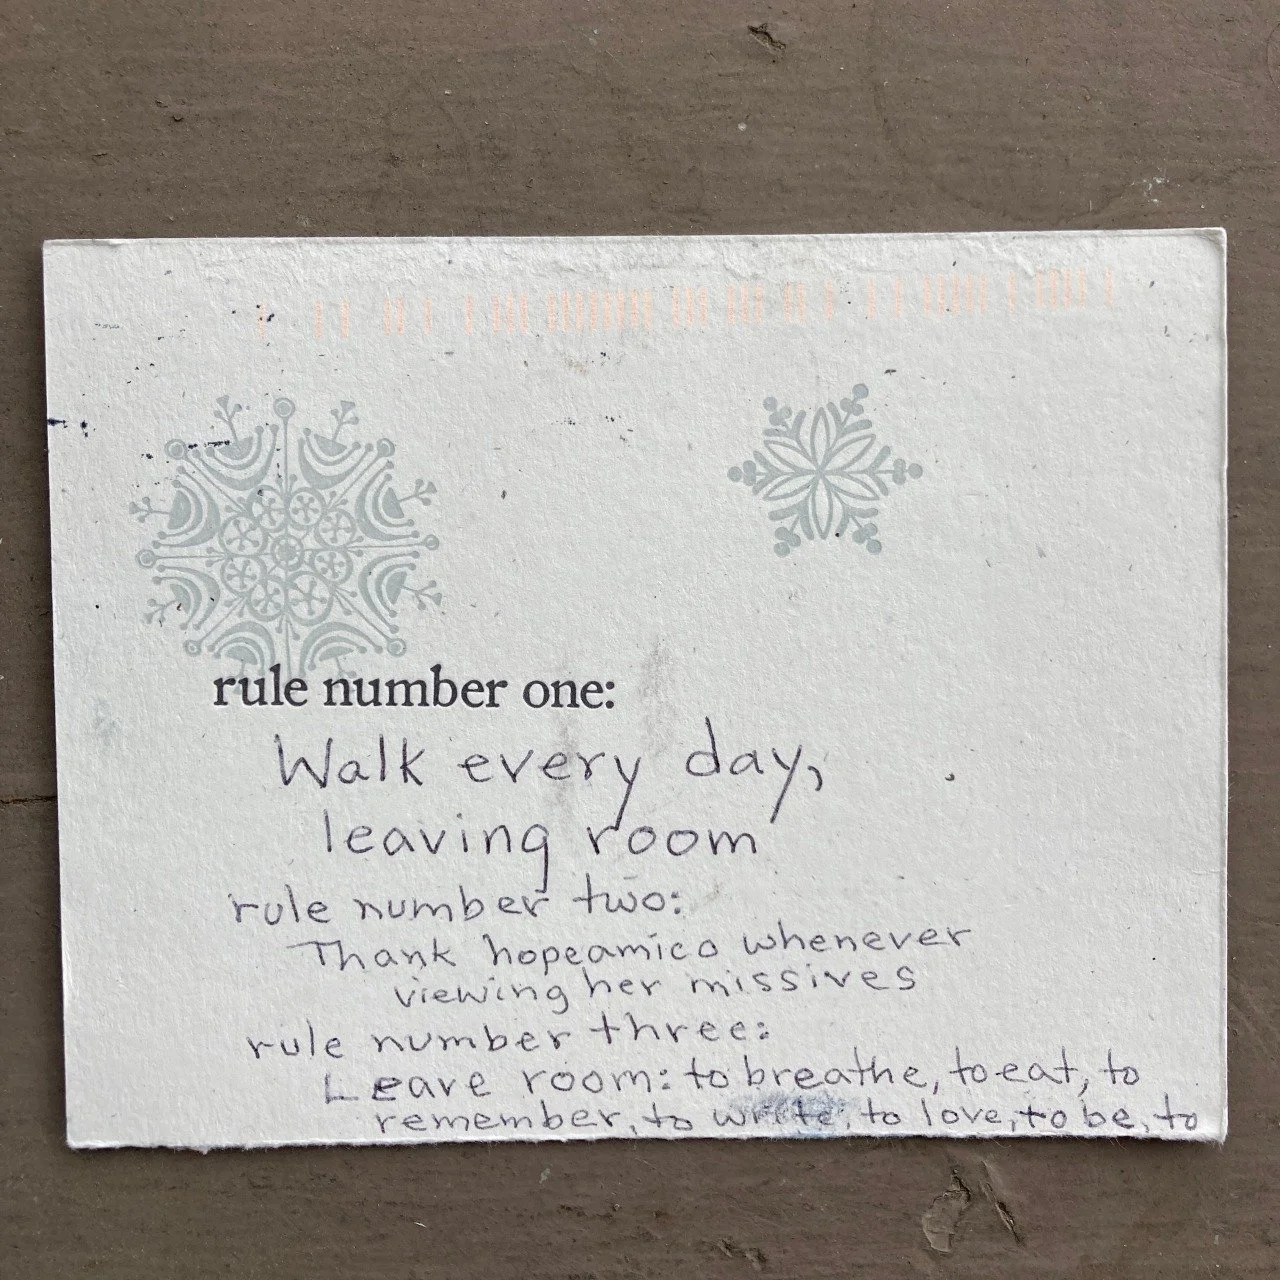 rule number one:
Walk every day,
leaving room
rule number two:
Thank hopeamico whenever
viewing her missives
rule number three:
Leave room: to breathe, to eat, to
remember, to write, to love, to be, to